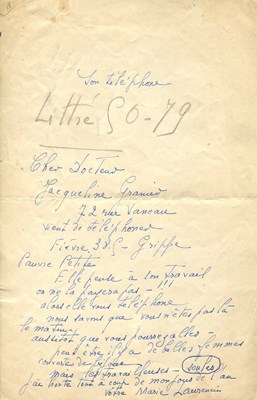 Son téléphone
Littré 50-79
Cher Docteur
Jacqueline Granier
72 rue Vaneau
vient de téléphoner
Fièvre 38.5 - Grippe
Pauvre Petite
Elle pense à son travail
on ne la payera pas - !!!
alors elle vous téléphone
nous savons que vous n'êtes pas là
le matin
aussitôt que vous pourrez allez
peut être il y a de belles femmes
couvertes de
mais les travailleuses - seules
j'ai
votre Marie Laurencin